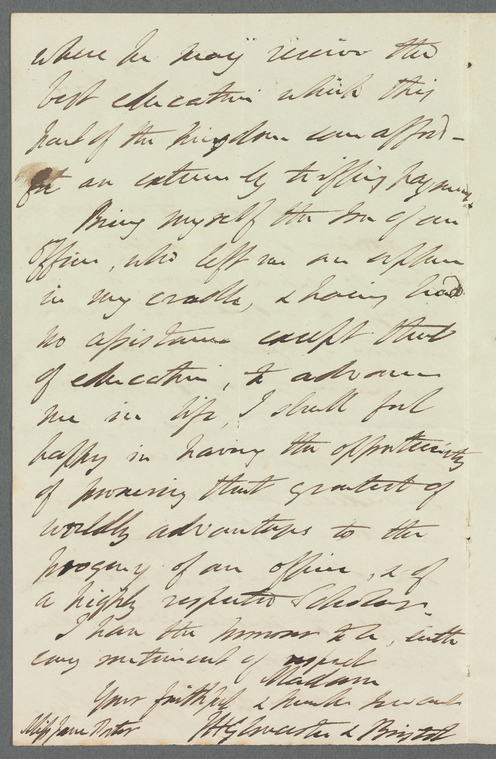 where he may receive the
best education which this
part of the kingdom can afford -
for an extremely trifling payment.
Being myself the son of an
officer, who left me an orphan
in my cradle, & having had
no assistance except that
of education, to advance
me in life, I shall feel
happy in having the opportunity
of procuring that greatest of
worldly advantages to the
progeny of an officer, & of
a highly respected Scholar.
I have the honour to be, with
every sentiment of respect
Madam
Your faithful & humble servant
J H Gloucester & Bristol
Miss Jane Porter